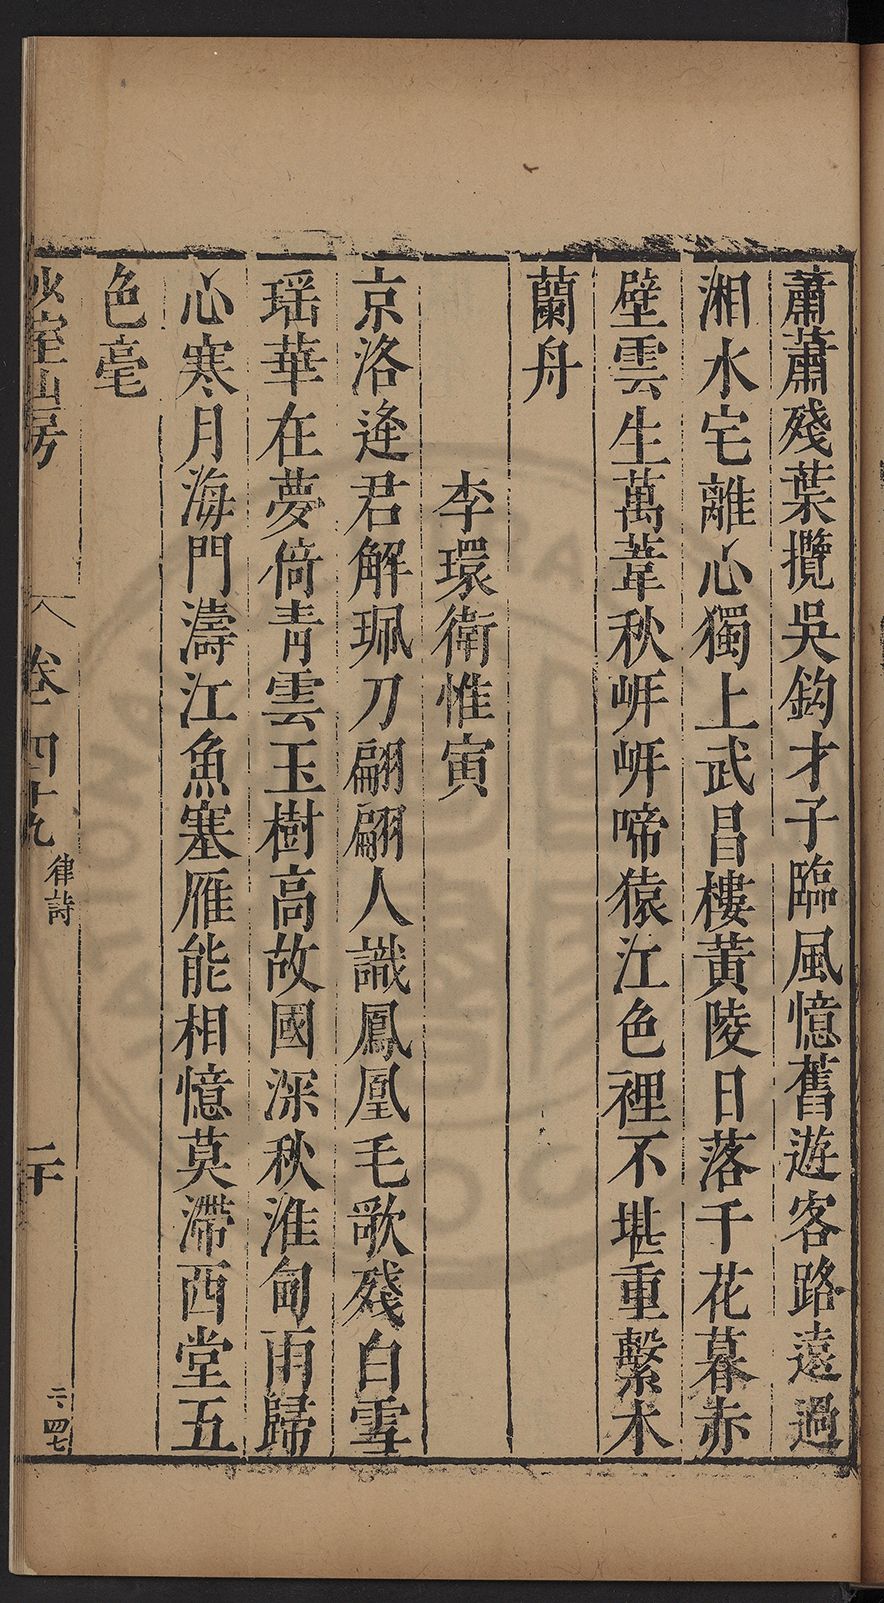 蕭蕭殘葉攬吳鈎才子臨風憶舊遊客路遠過
湘水宅離心獨上武昌樓黃陵日落千花暮赤
壁雲生萬葦秋岍岍啼猿江色裡不堪重繫木
蘭舟
李環衛惟寅
京洛逢君解珮刀翩翩人識鳳凰毛歌殘白雪
瑤華在夢倚青雲玉樹高故國深秋淮甸雨歸
心寒月海門濤江魚塞雁能相憶莫滯西堂五
色毫
室山房
卷四十九
律詩
二十
二、四七